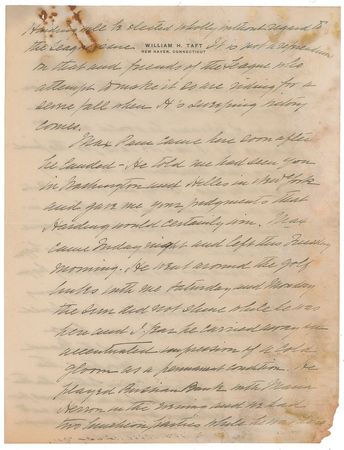 Harding will be elected wholly without regard to
the League issue. It is not a referendum
WILLIAM H. TAFT
NEW HAVEN, CONNECTICUT
on that and friends of the League who
attempt to make it so are riding for a
serious fall when H's sweeping victory
comes.
Max Pam came here soon after
he landed – He told me he had seen you
in Washington and Hilles in New York
and gave me your judgments that
Harding would certainly win. Max
came Friday night and left this Tuesday
morning. He went around the golf
links with me Saturday and Monday
the sun did not shine while he was
here and I fear he carried away an
accentuated impression of a cold
gloom as a permanent condition. He
played Russian Bank with
in the evening and we had
two luncheon parties while he was